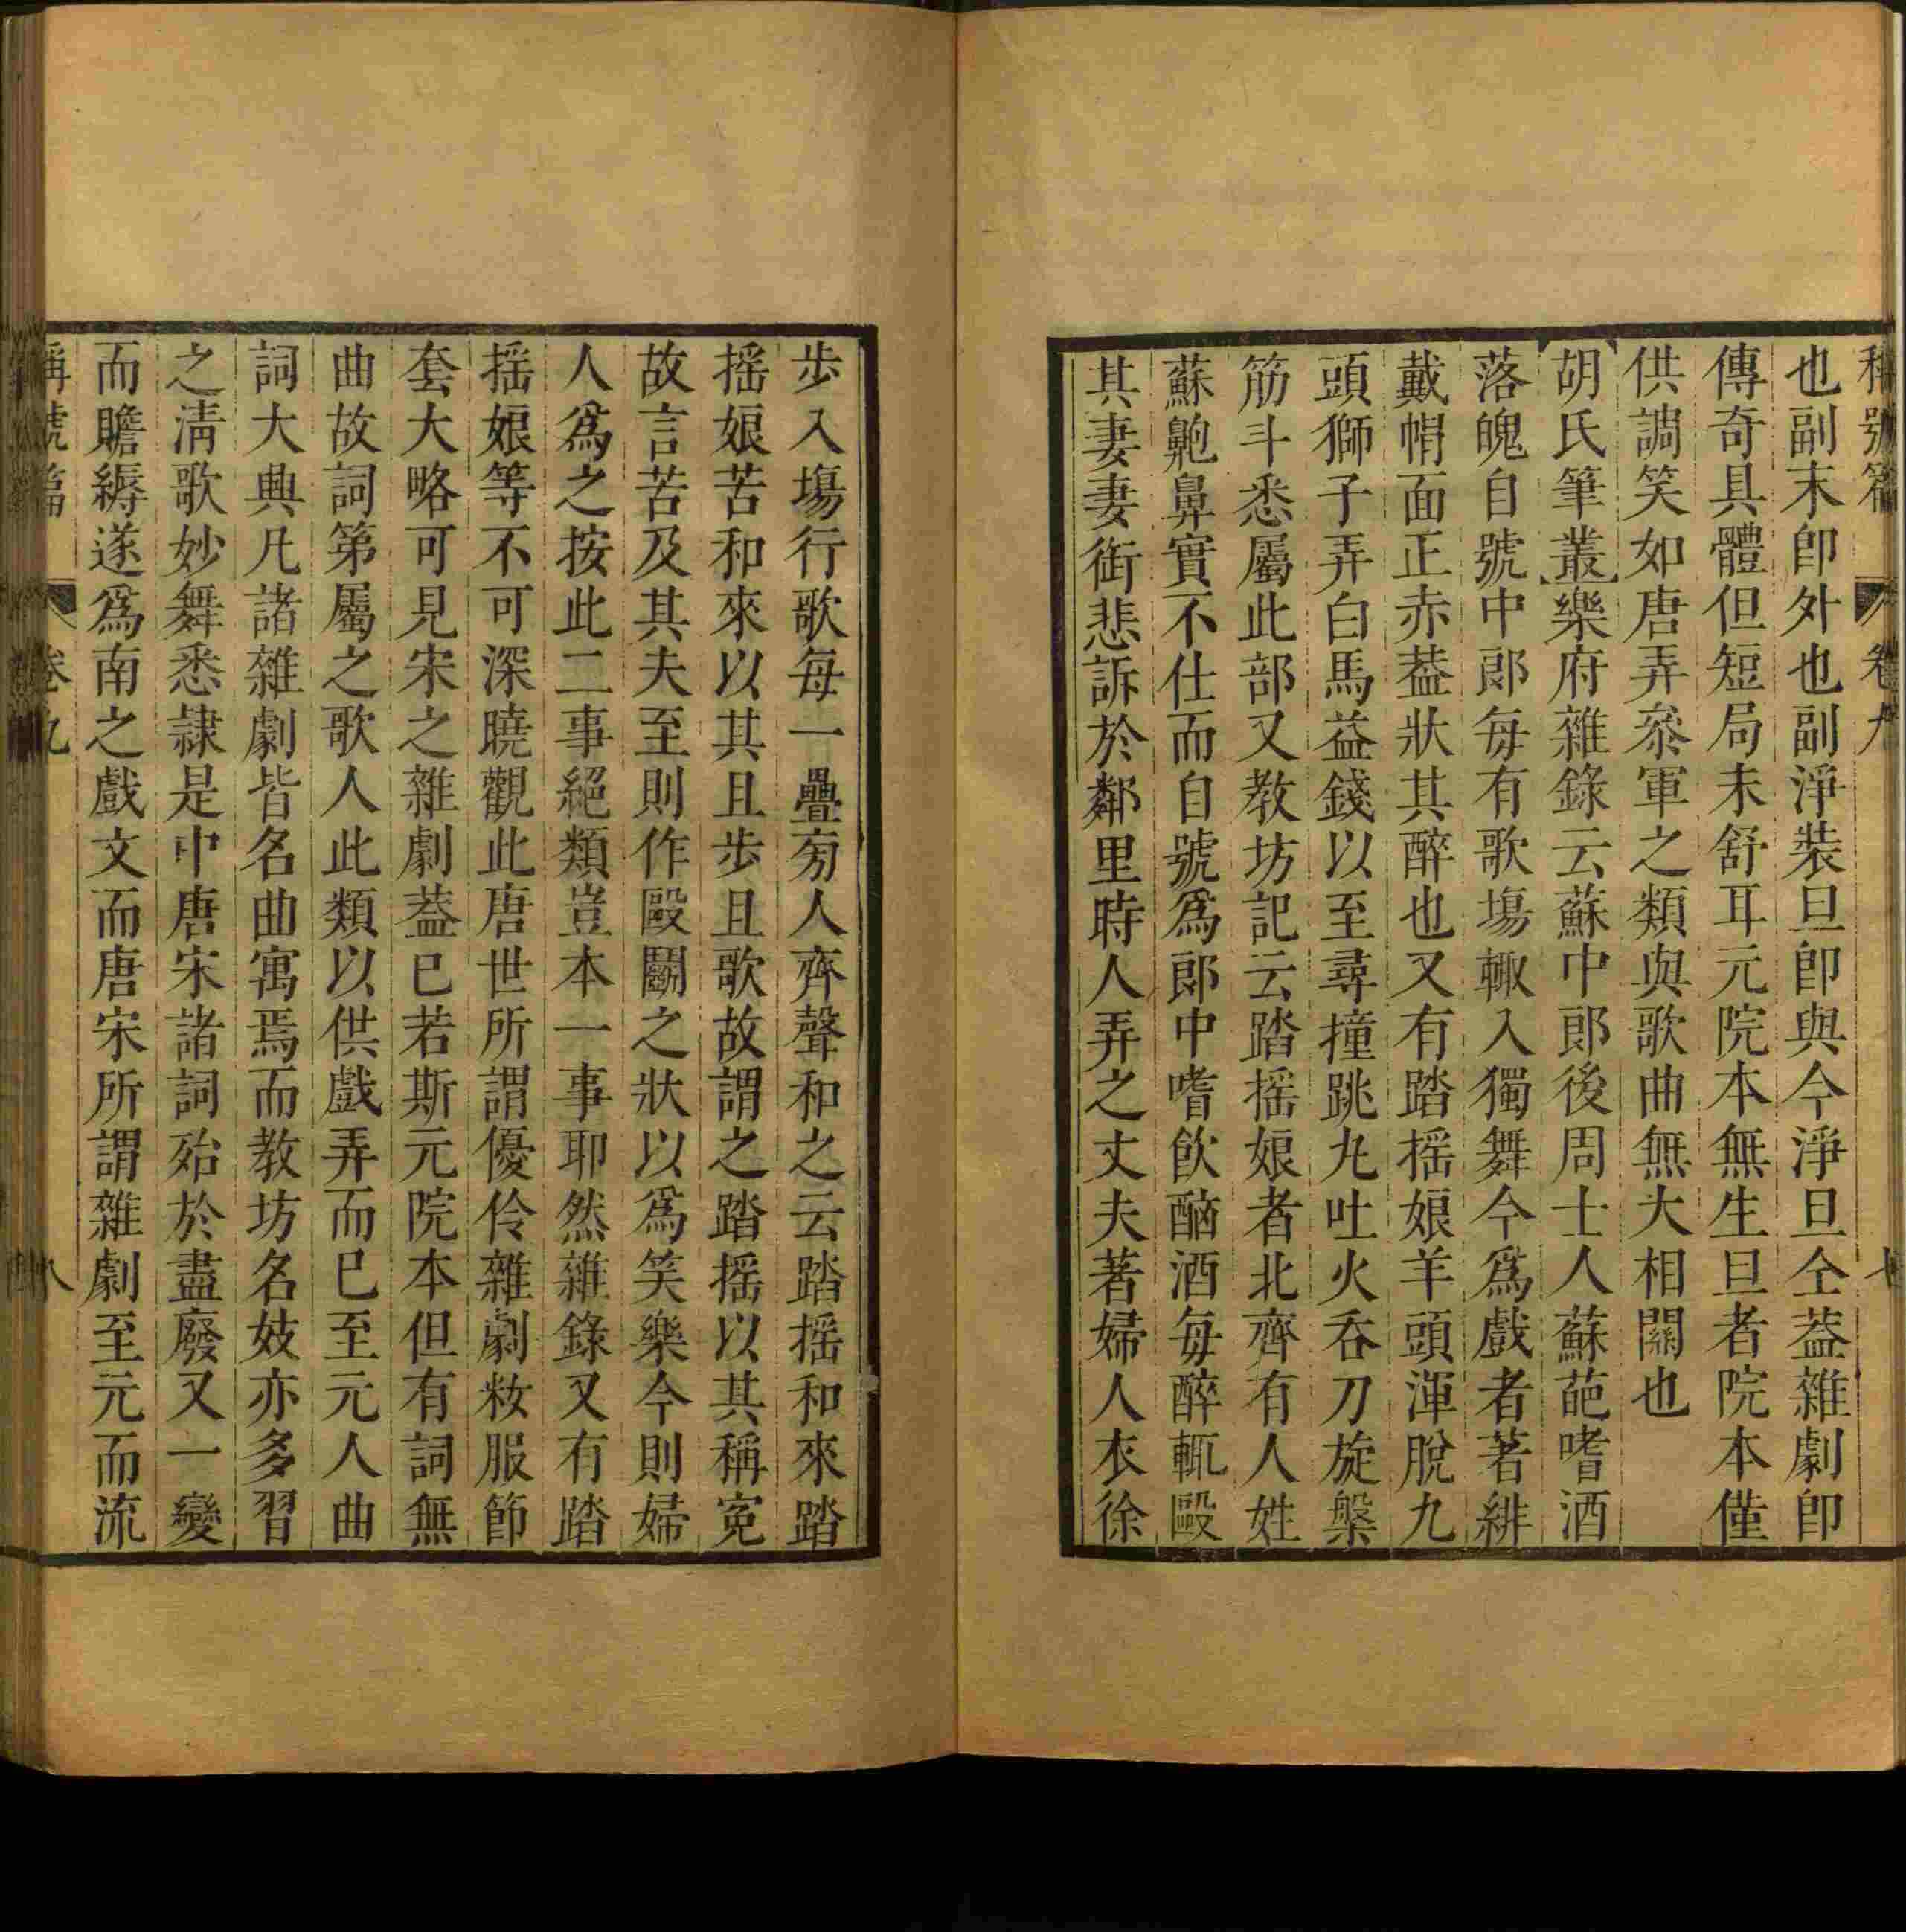 稱號篇 卷九 七
也副末卽外也副淨裝旦卽與今淨旦仝葢雜劇卽
傳奇具體但短局未舒耳元院本無生旦者院本僅
供調笑如唐弄叅軍之類與歌曲無大相關也
胡氏筆叢樂府雜錄云蘇中郎後周士人蘇葩嗜酒
落魄自號中郎每有歌塲輙入獨舞今爲戲者著緋
戴帽面正赤葢狀其醉也又有踏摇娘羊頭渾脫九
頭獅子弄白馬益錢以至尋撞跳丸吐火吞刀旋槃
筋斗悉屬此部又教坊記云踏摇娘者北齊有人姓
蘇齁鼻實不仕而自號爲郎中嗜飲酗酒每醉輒毆
其妻妻銜悲訴於鄰里時人弄之丈夫著婦人衣徐
步入塲行歌每一疊旁人齊聲和之云踏摇和來踏
摇娘苦和來以其且步且歌故謂之踏摇以其稱寃
故言苦及其夫至則作毆鬭之狀以爲笑樂今則婦
人爲之按此二事絕類豈本一事耶然雜錄又有踏
摇娘等不可深曉觀此唐世所謂優伶雜劇粧服節
套大略可見宋之雜劇葢已若斯元院本但有詞無
曲故詞第屬之歌人此類以供戲弄而已至元人曲
詞大典凡諸雜劇皆名曲寓焉而教坊名妓亦多習
之淸歌妙舞悉隷是中唐宋諸詞殆於盡廢又一變
而贍縟遂爲南之戲文而唐宋所謂雜劇至元而流
稱號篇 卷九 八